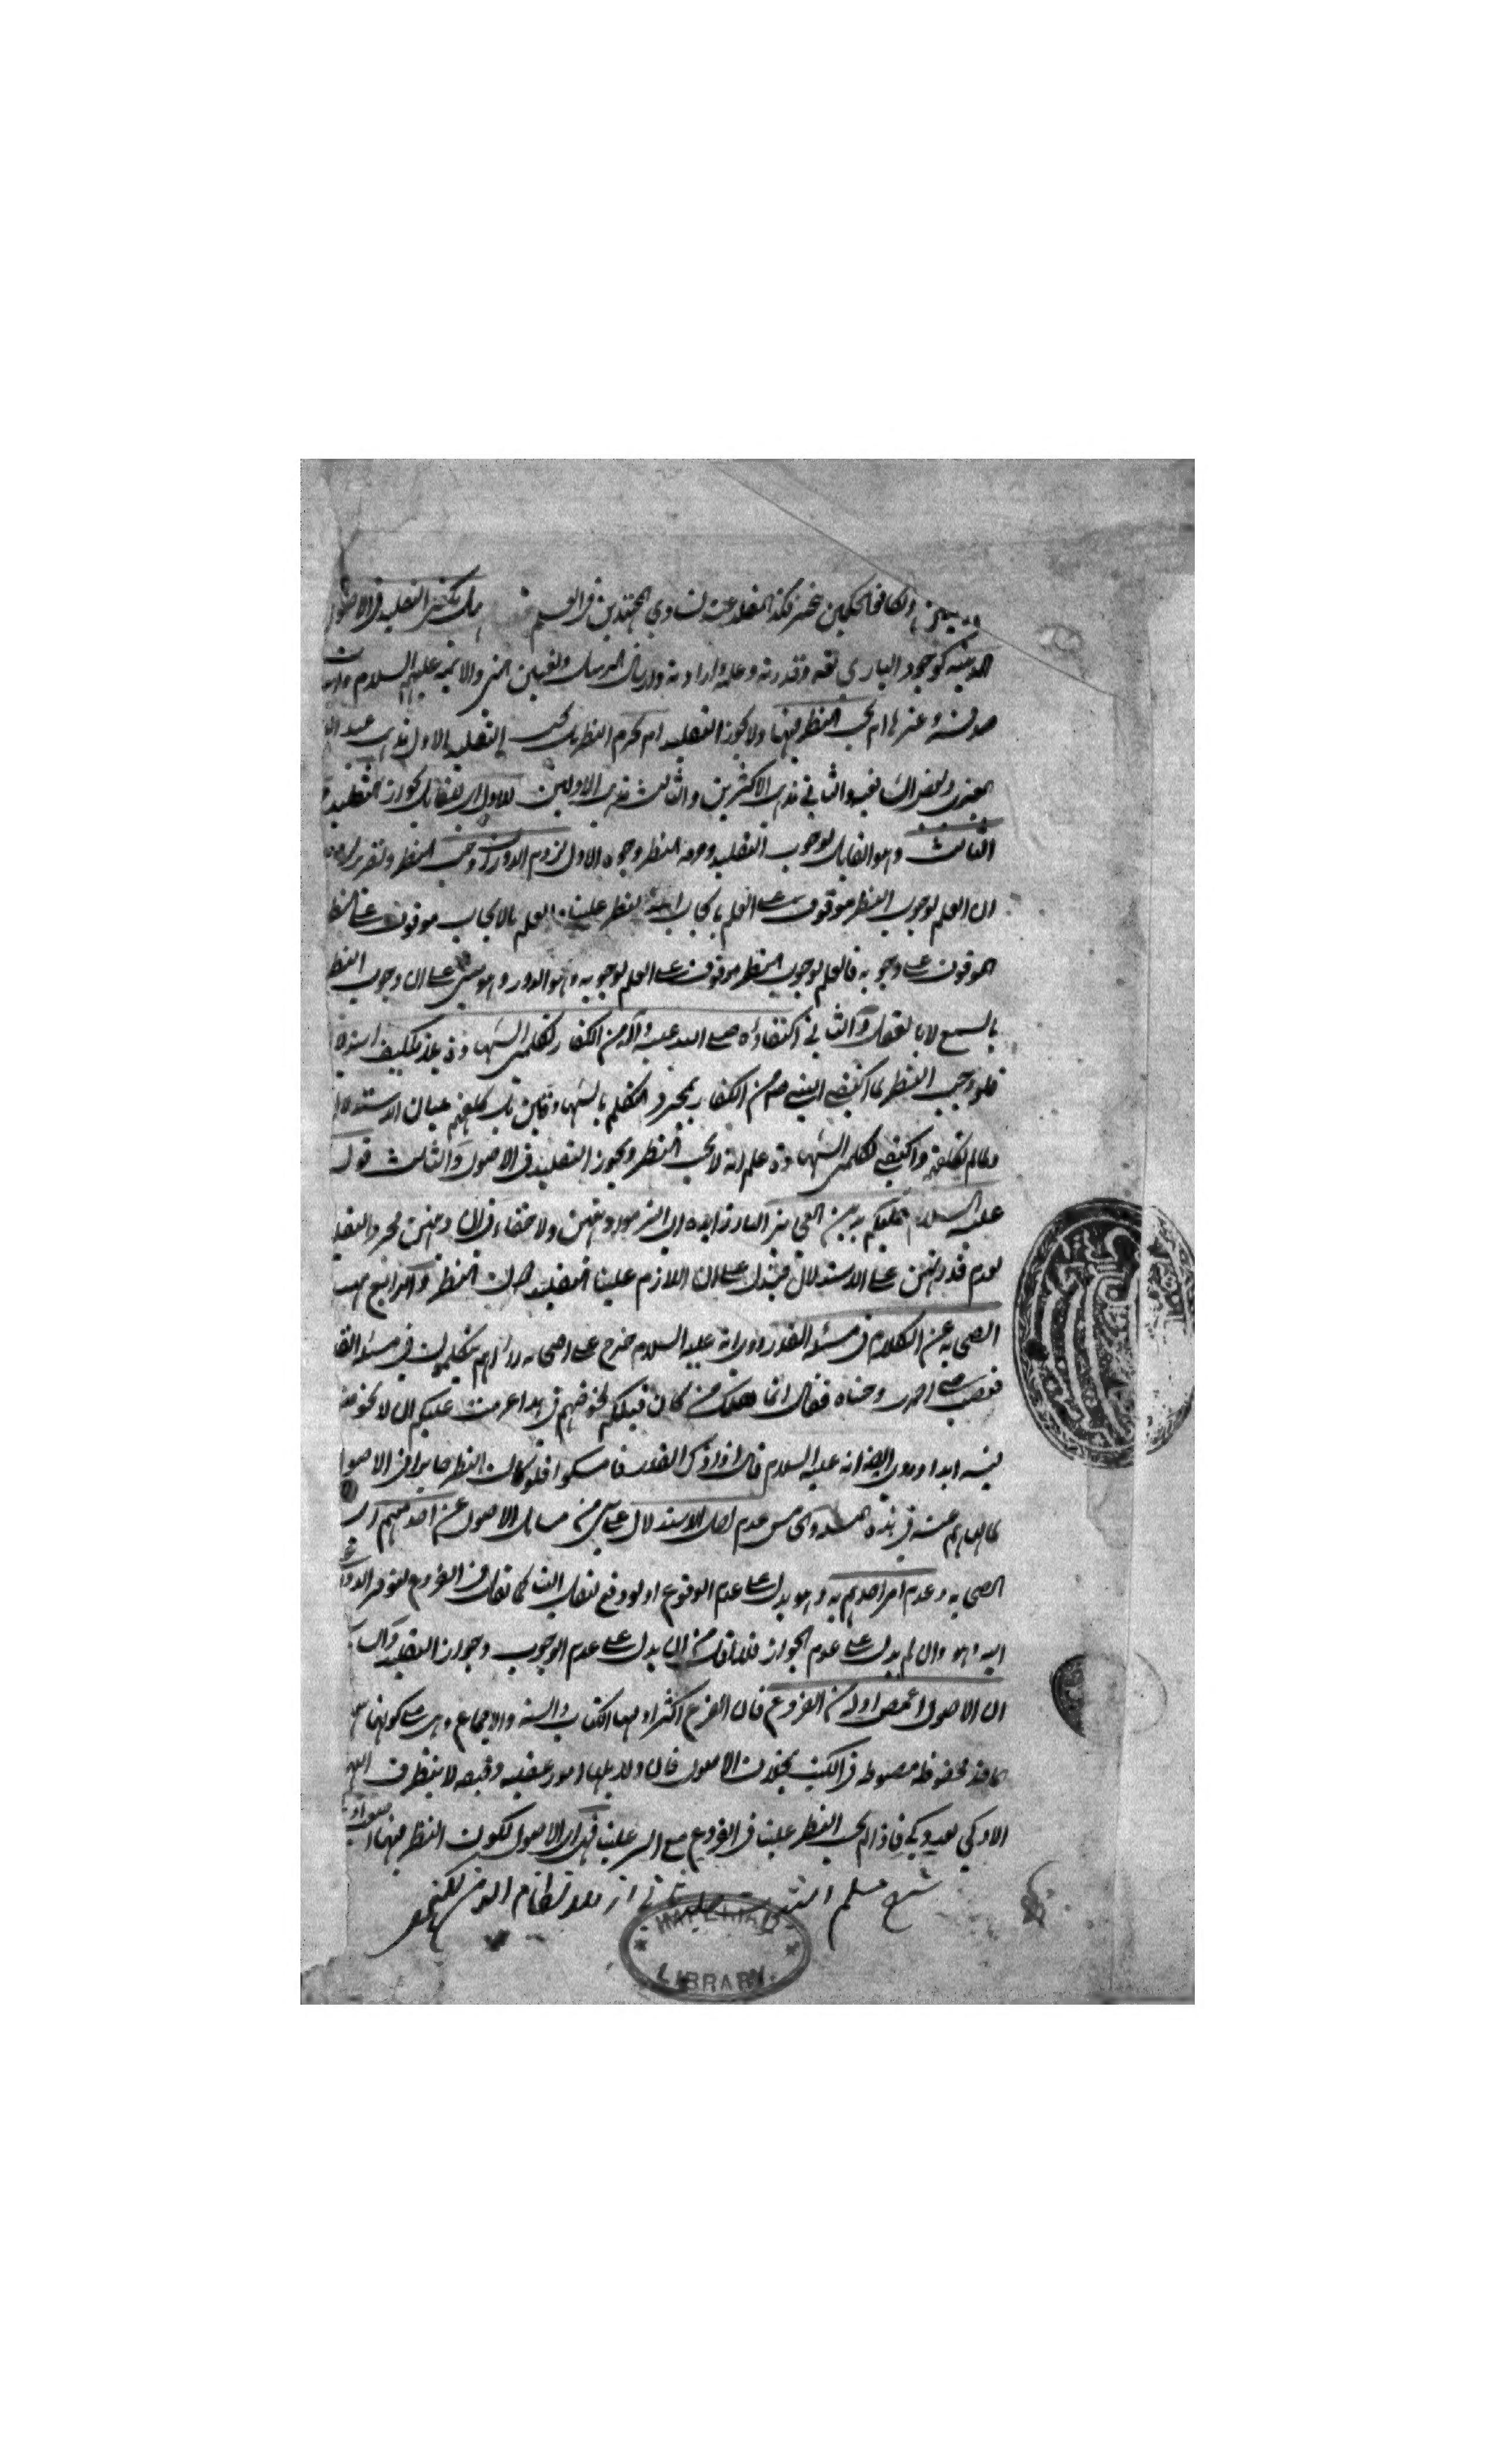 ولكافة الحكمين مخير فكذا المقلد عند تساوي المجتهدين في العلم هل يكفي التقليد في الاصول
الدينية كوجود الباري تعه وقدرته وعلمه وارادته وارسال الرسل وتعيين النبي والائمة عليهم السلام
صدقه وغيرها ام يجب النظر فيها ولا يجوز التقليد ام يحرم النظر بل يجب التقليد الاول مذهب عبد الله
العنبري وبعض الشافعية والثاني مذهب الاكثرين والثالث مذهب الاولين للاول اي للقائل بجواز التقليد
الثالث وهو القايل لوجوب التقليد وحرمة النظر وجوه الاول لزوم الدور ان وجب النظر وتقريره
ان العلم لوجوب النظر موقوف على العلم بايجاب الله النظر علينا والعلم بالايجاب موقوف على النظر
الموقوف على وجوبه فالعلم لوجوب النظر موقوف على العلم لوجوبه وهو الدور وهو مبني على ان وجوب النظر
بالسمع لا بالعقل والثاني اكتفاؤه صلى الله عليه وآله من الكفار بكلمتي الشهادة بلا تكليف استدلال
فلو وجب النظر لما اكتفى النبي صم من الكفار بمجرد التكلم بالشهادتين بل كلفهم ببيان الاستدلال
ولما لم يكلفهم واكتفى بكلمتي الشهادة علم انه لا يجب النظر ويجوز التقليد في الاصول والثالث قوله
عليه السلام عليكم بدين العجايز ولا خفاء في ان دينهن مجرد التقليد
لعدم قدرتهن على الاستدلال فيدل على ان اللازم علينا التقليد دون النظر والرابع نهي
الصحابة عن الكلام في مسئلة القدر روي انه عليه السلام خرج على اصحابه فرآهم يتكلمون في مسئلة القدر
فغضب حتى احمرت وجنتاه فقال انما هلك من كان قبلكم لخوضهم في هذا عزمت عليكم ان لا تخوضوا
فيه ابدا وروي ايضا انه عليه السلام قال اذا ذكر القدر فامسكوا فلو كان النظر جايزا في الاصول
لما نهاهم عنه في هذه المسئلة والخامس عدم نقل الاستدلال على شي من مسايل الاصول عن احد منهم اي
الصحابة وعدم امر احدهم به وهو يدل على عدم الوقوع اذ لو وقع لنقل الينا كما نقل في الفروع لتوفر الدواعي
اليه وهو وان لم يدل على عدم الجواز فلا اقل من ان يدل على عدم الوجوب وجواز التقليد والسادس
ان الاصول اغمض ادلة من الفروع فان الفرع اكثر ادلتها الكتاب والسنة والاجماع وهي على كونها
محفوظة مضبوطة في الكتب بخلاف الاصول فان دلايلها امور عقلية دقيقة لا يتفطن اليها
الا ذكي بعد ذكي فاذا لم يجب النظر علينا في الفروع مع السر علينا ففي الاصول لكون النظر فيها
شرح مسلم الثبوت از ملا نظام الدين لكهنوي
LIBRARY